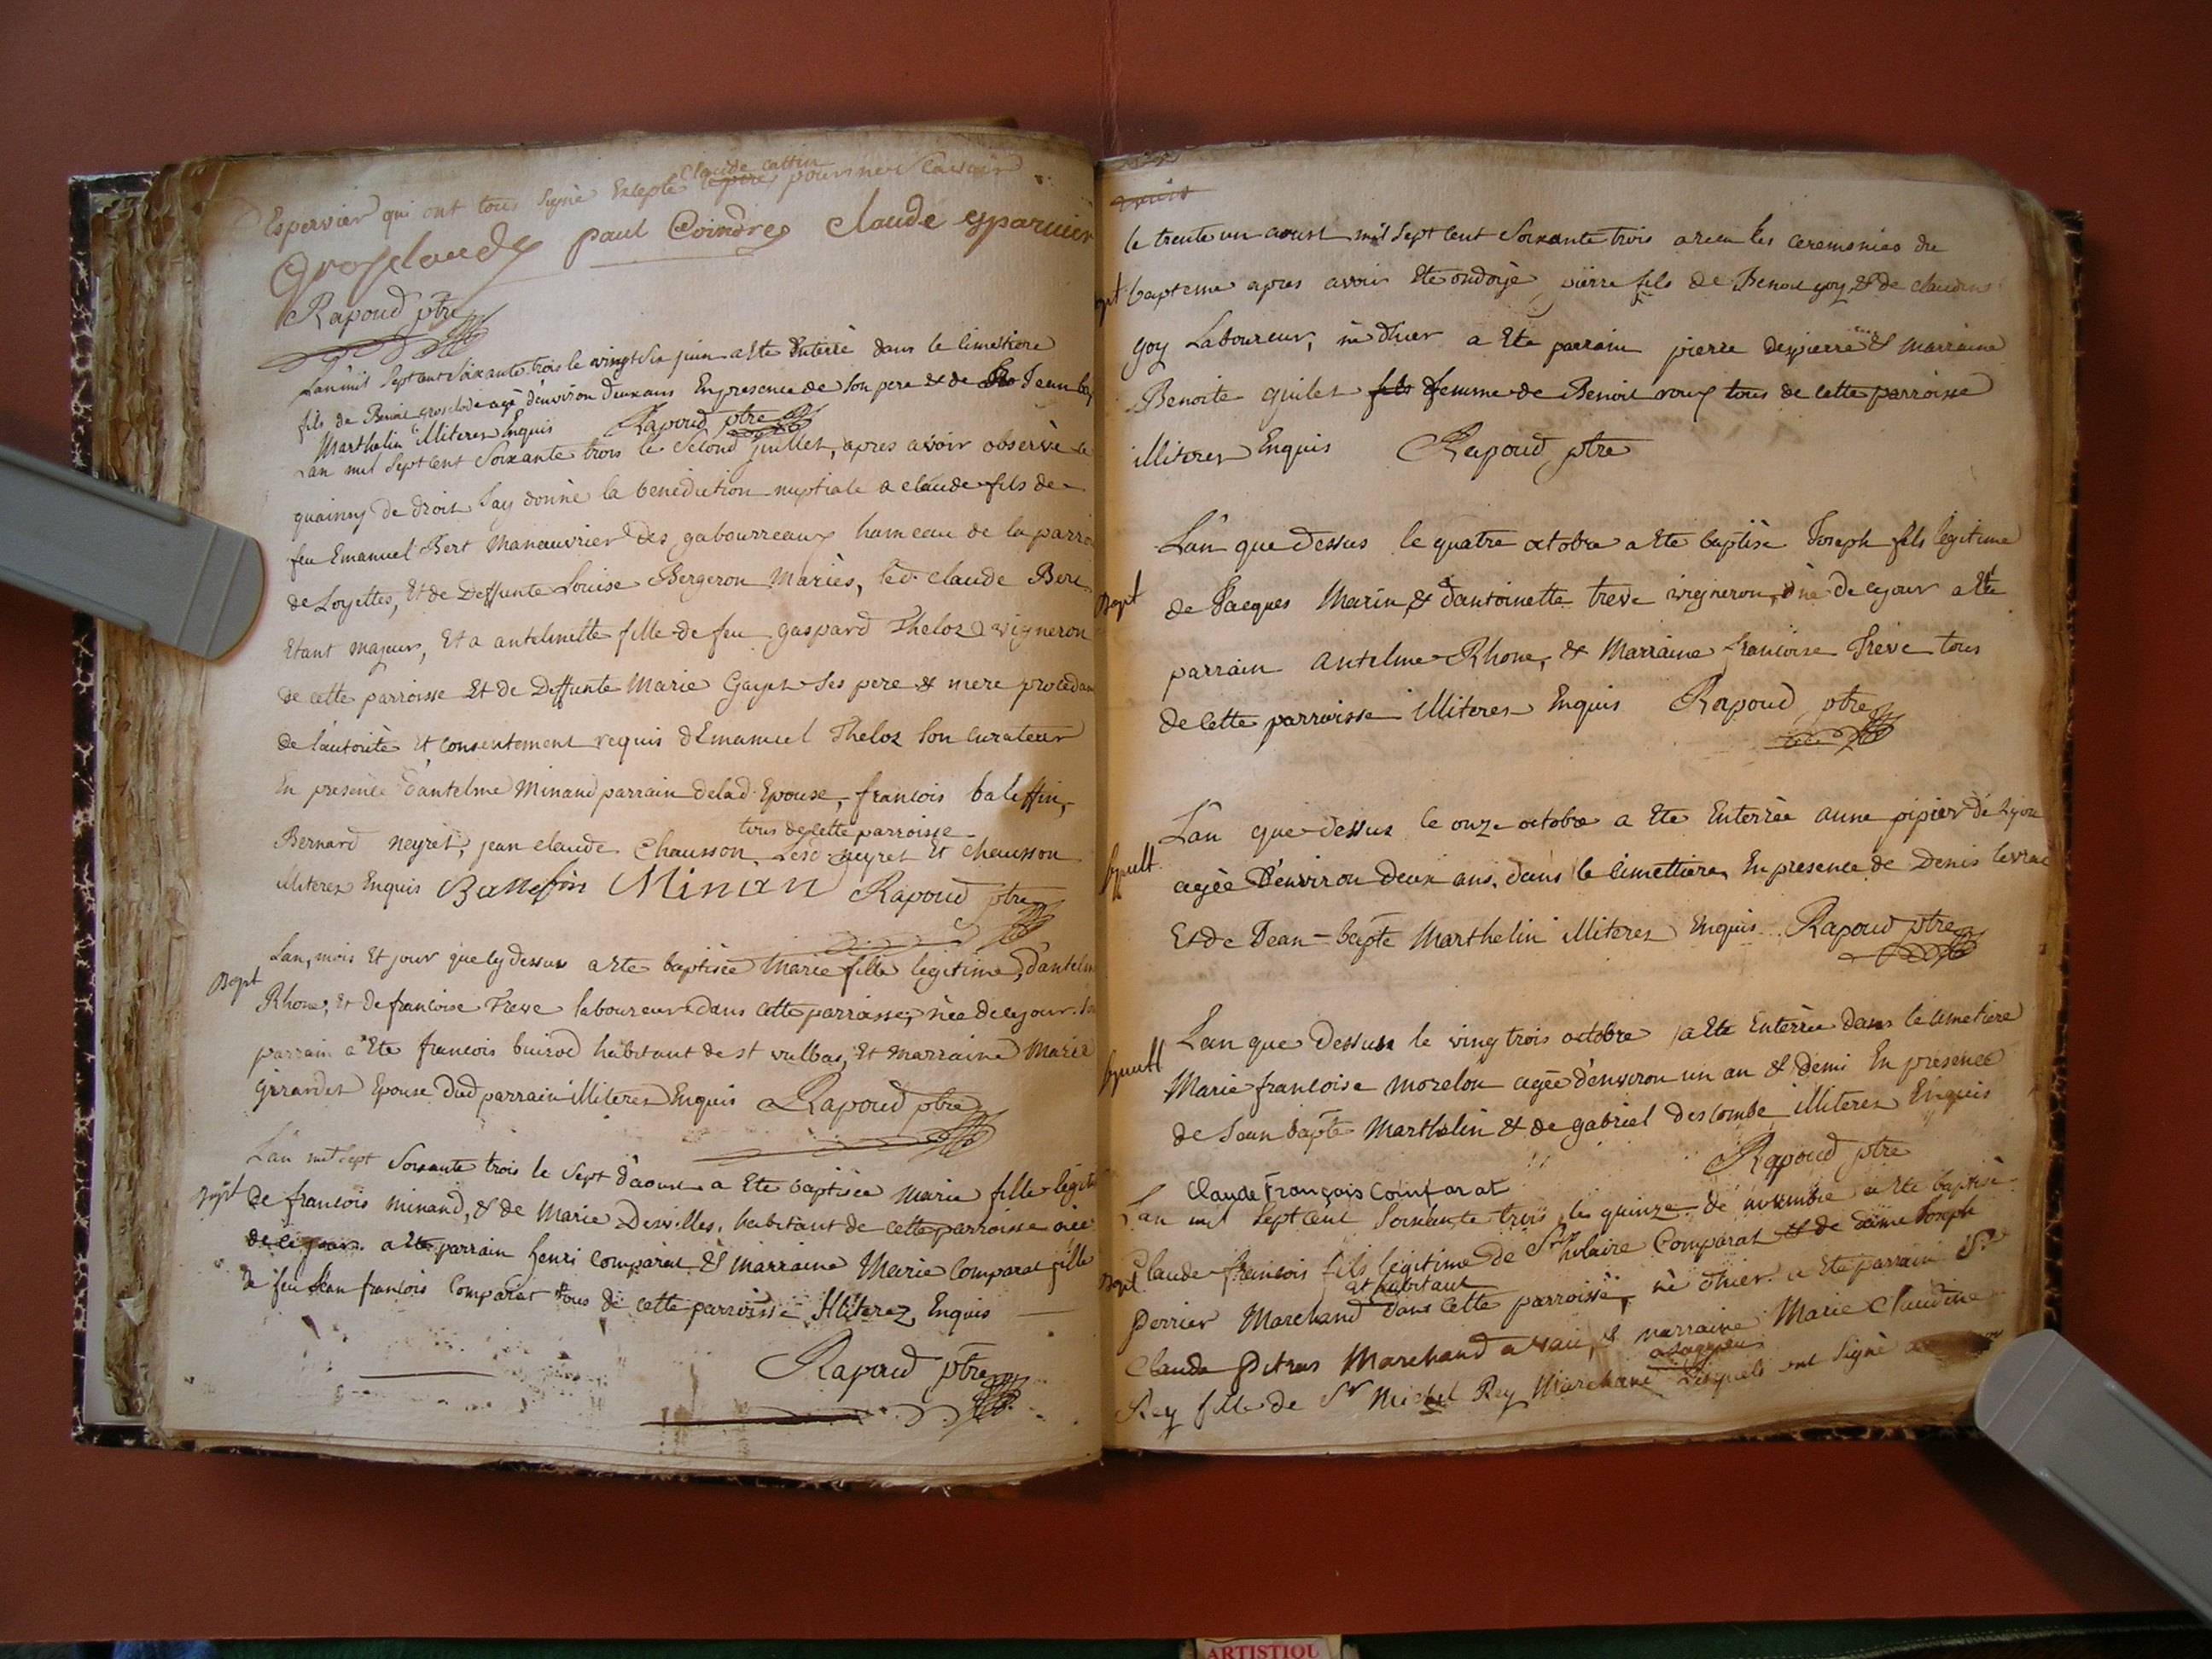 Claude cattin
Espervier qui ont tous signè Excepté pour ne le scavoir
Grosclaude paul Coindre claude esparvier
Rapoud ptre
L'an mil Sept cent Soixante trois le vingt Six juin a ete Enterré dans le Cimetiere
fils de Benoit grosclode agé d'environ deux ans En presence de Son pere & de Jean bap
Marthelin illiteres Enquis Rapoud ptre
Lan mil Sept Cent Soixante trois le Second juillet, apres avoir observè le
de droit Jay donnè la benediction nuptiale a claude fils de
feu Emanuel Bert Manœuvrier des gabourreaux hameau de la parroi
de Loyettes, Et de Deffunte Louise Bergeron Mariès, led. claude Bert
Etant majeur, Et a antelmette fille de feu gaspard Theloz vigneron
de cette parroisse Et de Deffunte Marie Gayet Ses pere & mere procedant
de l'autoritè Et Consentement requis d'Emanuel Theloz Son Curateur
En presence d'antelme Minand parrain de lad. Epouse, francois baleffin,
tous de cette parroisse
Bernard neyret, jean claude Chausson Lesd. neyret Et Chausson
illiteres Enquis Balleffin Minan Rapoud ptre
Bapt
Lan, mois Et jour que cy dessus a ete baptisée Marie fille legitime d'antelm
Rhone, Et de francoise Treve laboureur dans cette parroisse, née de ce jour. Son
parrain a Ete francois buirod habitant de st vulbas, Et marraine Marie
girardet Epouse dud parrain illiteres Enquis Rapoud ptre
Bapt
L'an mil sept Soixante trois le Sept d'aoust a Ete baptisée Marie fille legiti
de francois minand, & de Marie Desvilles, habitant de cette parroisse née
de ce jour. a Ete parrain henri Comparat & Marraine Marie Comparat fille
de feu Jean francois Comparat tous de cette parroisse Illiterez Enquis
Rapoud ptre
le trente un aoust mil Sept Cent Soixante trois a recu les ceremonies du
bapt
bapteme apres avoir Ete ondoyè pierre fils de Benoit goy, & de claudine
goy Laboureur, nè d'hier a Ete parrain pierre despierre & Marraine
Benoite guilet fils femme de Benoit roux tous de cette parroisse
illiteres Enquis Rapoud ptre
Bapt
Lan que dessus le quatre octobre a Ete baptisè Joseph fils legitime
de Jacques Marin & d'antoinette treve vigneron, nè de ce jour a Ete
parrain Antelme Rhone, & Marraine francoise Treve tous
de Cette parroisse illiteres Enquis Rapoud ptre
Sepult
Lan que dessus le onze octobre a Ete Enterrèe anne pipier de Lyon
agèe d'environ deux ans, dans le Cimettiere En presence de Denis levrat
Et de Jean-bapte Marthelin illiteres Enquis Rapoud ptre
Sepult
Lan que Dessus le ving trois octobre a Ete Enterrèe dans le Cimetiere
Marie francoise morelon agèe d'environ un an & demi En presence
de Jean bapte Marthelin & de gabriel descombe illiteres Enquis
Rapoud ptre
Claude François Comparat
Lan mil Sept Cent Soixante trois le quinze de novembre a Ete baptisè
Bapt
Claude francois fils legitime de Sr hilaire Comparat & de dame Joseph
et habitant
Perrier Marchand dans cette parroisse, nè d'hier a Ete parrain Sr
Claude Pitras Marchand a vaux, & marraine Marie Claudine
a Lagnieu
Rey fille de Sr Michel Rey Marchand Lesquels ont Signè
ARTISTIQU